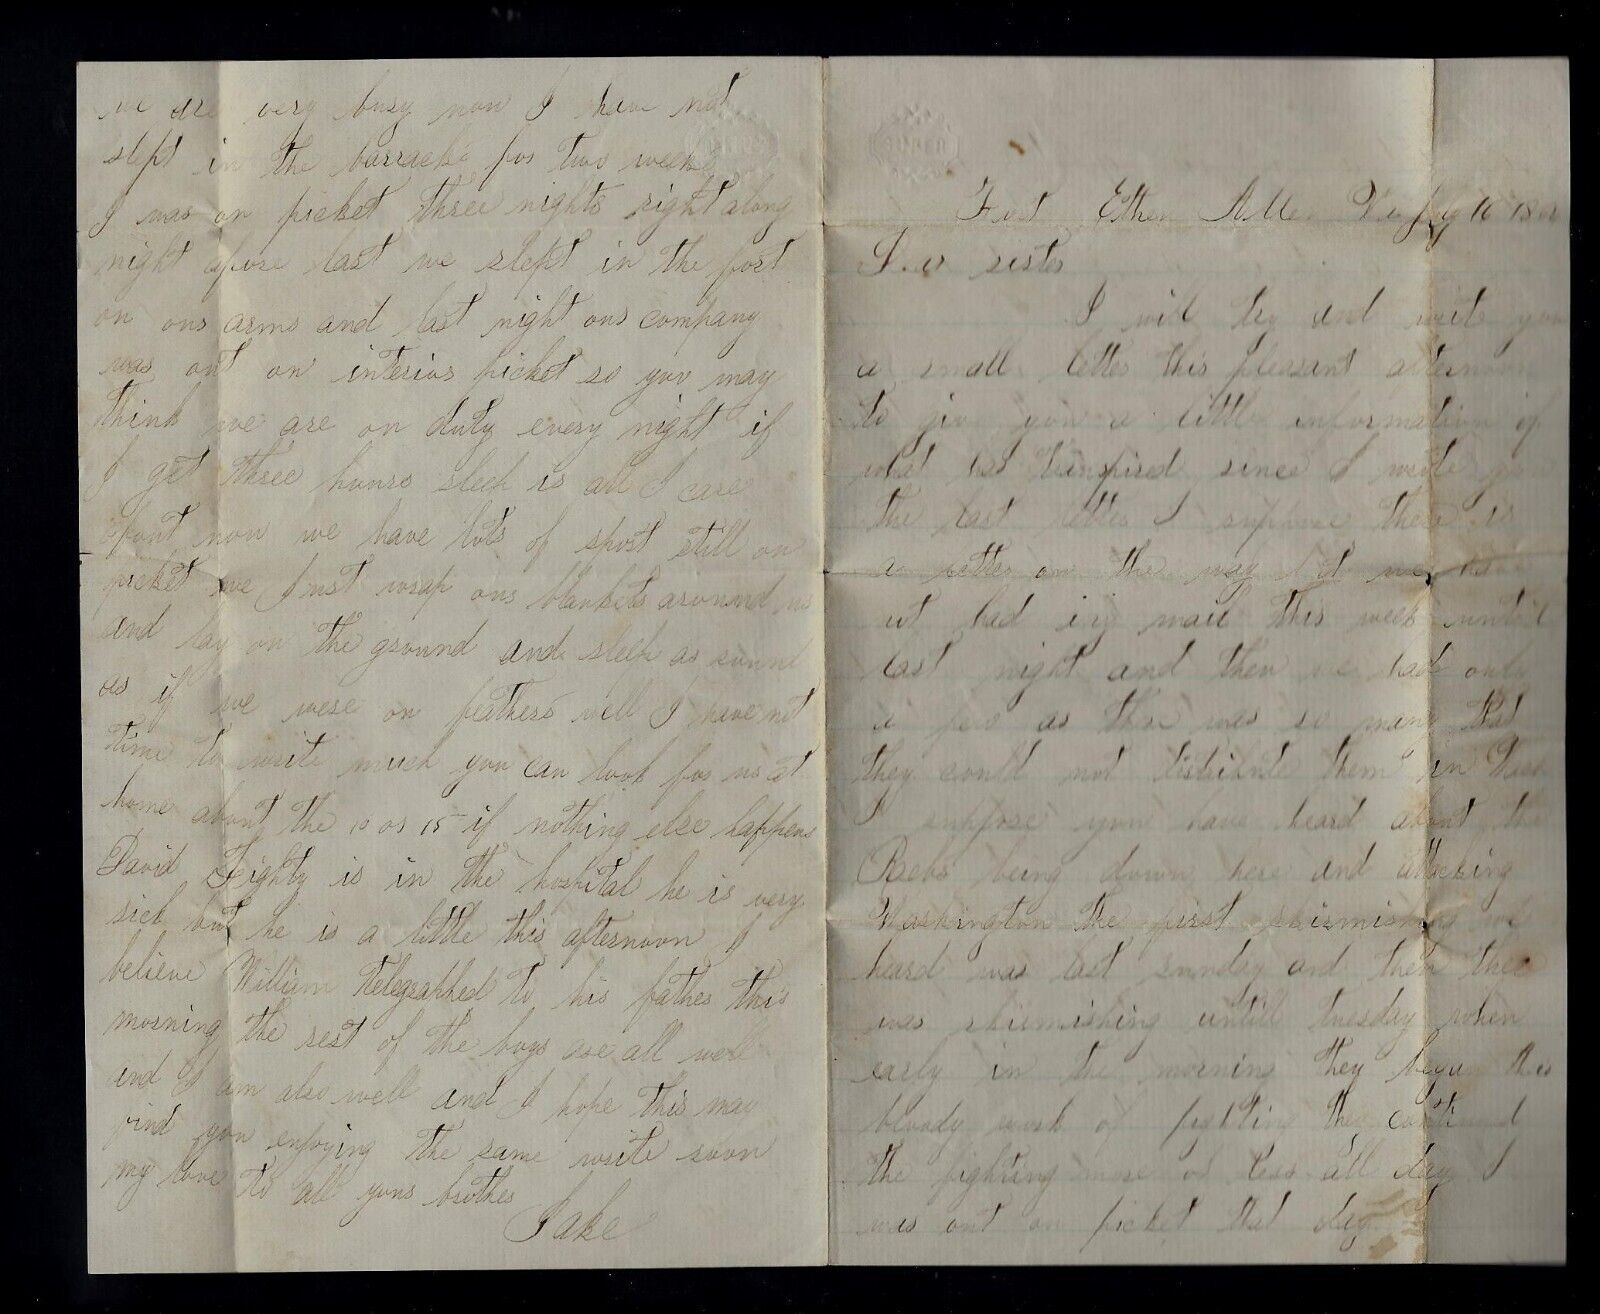 Fort Ethan Allen Va July 16 186
Dear sister
I will try and write you
a small letter this pleasant afternoon
to give you a little information of
what has transpired since I wrote you
the last letter I suppose there is
a letter on the way but we have
not had any mail this week until
last night and then we had only
a few as there was so many that
they could not distribute them in Wash
I suppose you have heard about the
Rebs being down here and attacking
Washington the first skirmishing we
heard was last sunday and then there
was skirmishing untill tuesday when
early in the morning they began their
bloody work of fighting they continued
the fighting more or less all day I
was out on picket that day
we are very busy now I have not
slept in the barracks for two weeks
I was on picket three nights right along
night afore last we slept in the fort
on our arms and last night our company
was out on interior picket so you may
think we are on duty every night if
I get three hours sleep is all I care
about now we have lots of sport still on
picket we Just wrap our blankets around us
and lay on the ground and sleep as sound
as if we were on feathers well I have not
time to write much you can look for us at
home about the 10 or 15 if nothing else happens
David Fighty is in the hospital he is very
sick but he is a little this afternoon I
believe William Telegraphed to his father this
morning the rest of the boys are all well
and I am also well and I hope this may
find you enjoying the same write soon
my love to all your brother
Jake